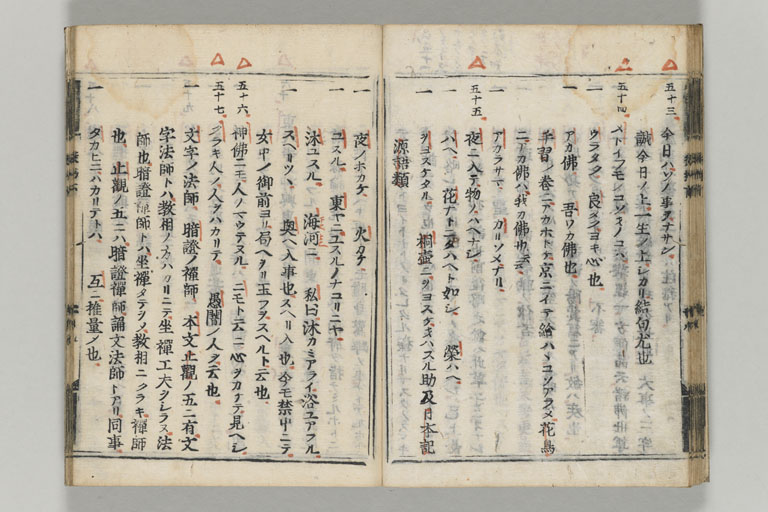 五十三 今日ハソノ事ヲナサン
誠今日ノ上一生ノ上シカリ結句尤也
五十四 メトイフモノコソキノコハ
一 ウラメク 良メクヨキ心也
一 アカ佛 吾ワカ佛也
手習ノ巻ニアカホトケ京ニイテ給ハヽコソアラメ花鳥
ニアカ佛ハ我カ佛也云
一 アカラサマ カリソメナリ
五十五 夜ニ入テ物ノハヘナシ
ハヘ 花ナト 如シ 榮ハヘ
一 ヲヨスケタル 桐壷ニヲヨスケ ハスル助及日本記
源語類
一 夜ノホカケ 火カケ
一 ユスル 東ヤニユスルノナコリニヤ
沐ユスル 海河ニ 私曰沐カミアライ浴ユアフル
一 スヘリツヽ 奥ヘ入事也スヘリ入也今モ禁中ニテ
女中ノ御前ヨリ局ヘクタリ玉フヲスヘルト云也
五十六 神佛ニモ人ノマウテヌル ニモト云ニ心ヲカナテ見ヘシ
五十七 クラキ人ノ人ヲハカリテ 愚闇ノ人ヲ云也
一 文字ノ法師 暗證ノ禪師 本文止觀ノ五ニ有文
字法師トハ教相ノ方ハカリニテ坐禪工夫ヲシラヌ法
師也暗證禪師トハ坐禪タテヲシ教相ニクラキ禪師
也 止觀ノ五ニハ暗證禪師誦文法師トアリ同事
一 タカヒニハカリテトハ 互ニ推量ノ也